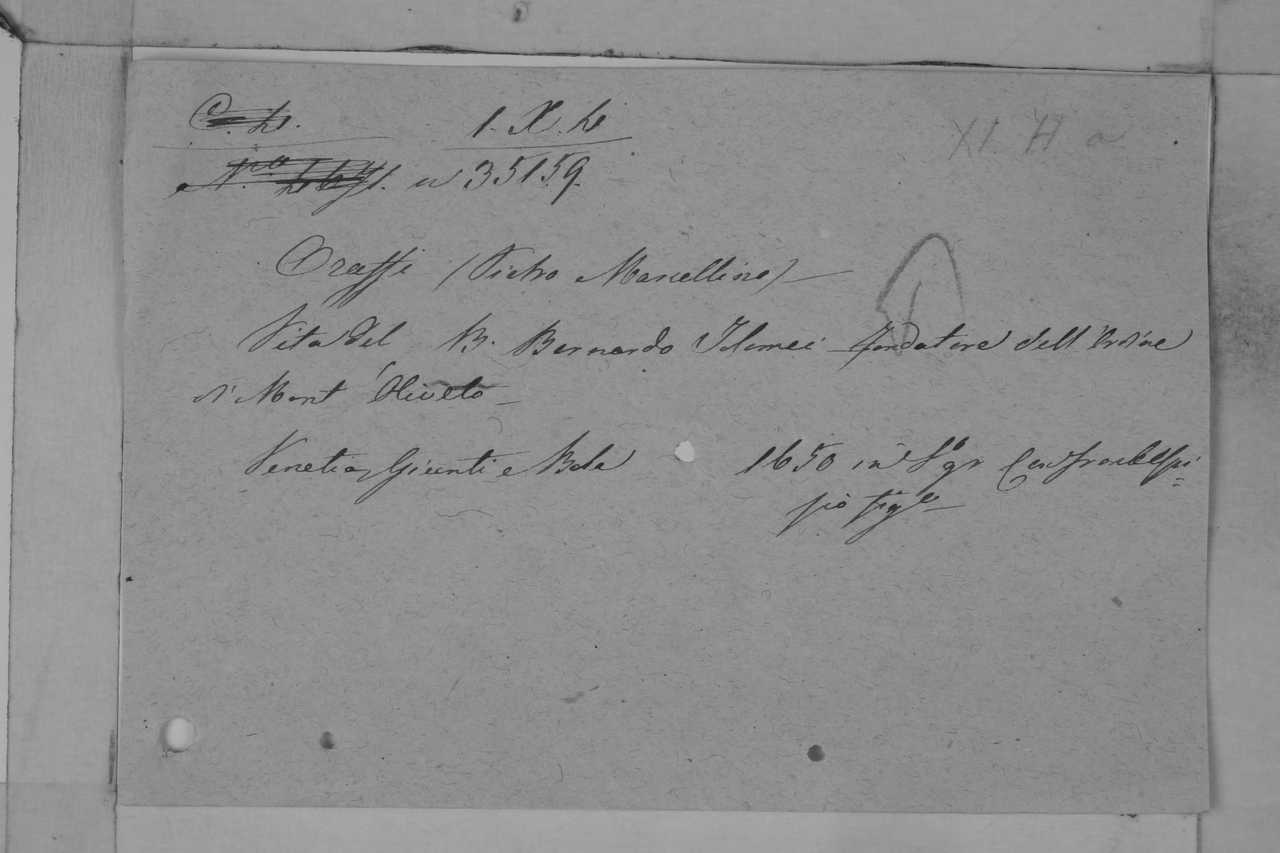 C. h. 1. X. h XI. H a
N.ro u 35159.
Orassi (Pietro Marcellino) —
Vita del B. Bernardo Tolomei fondatore dell'Ordine
di Mont' Oliveto —
Venetia, Giunti e Baba 1650 in 8° gr Con frontespi=
pio fig.to —